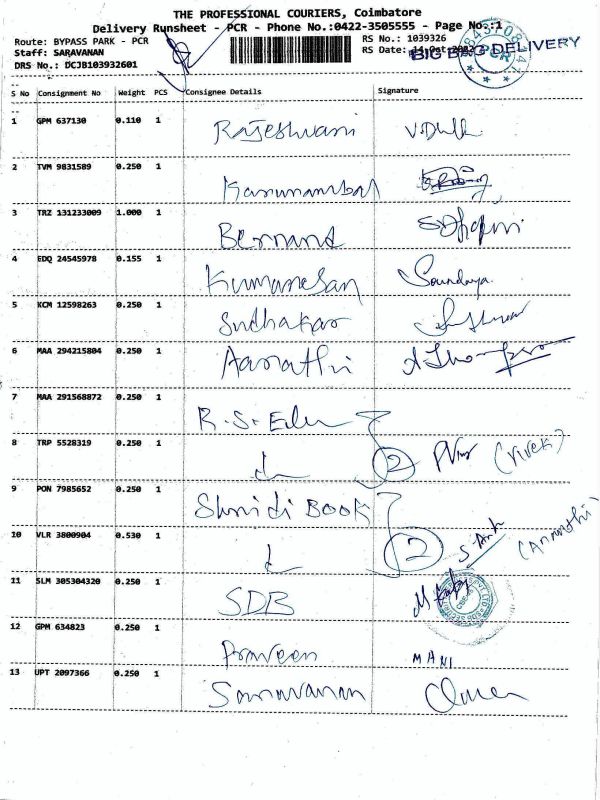 THE PROFESSIONAL COURIERS, Coimbatore
Delivery Runsheet - PCR - Phone No.:0422-3505555 - Page No.:1
Route: BYPASS PARK - PCR
RS No.: 1039326
Staff: SARAVANAN
RS Date:
BIG BAG DELIVERY
PCR
DRS No.: DCJB103932601
S No Consignment No Weight PCS Consignee Details Signature
1 GPM 637130 0.110 1 Rajeshwari
2 TVM 9831589 0.250 1 Karunambal
3 TRZ 131233009 1.000 1 Bernand
4 EDQ 24545978 0.155 1 Kumaresan Soundarya
5 KCM 12598263 0.250 1 Sudhakar
6 MAA 294215804 0.250 1 Aarathi
7 MAA 291568872 0.250 1 R.S. Edu
8 TRP 5528319 0.250 1 2 (Vivek)
9 PON 7985652 0.250 1 Shridi BOOK
10 VLR 3800904 0.530 1 2 (Ananthi)
11 SLM 305304320 0.250 1 SDB
12 GPM 634823 0.250 1 Praveen MANI
13 UPT 2097366 0.250 1 Saravanan